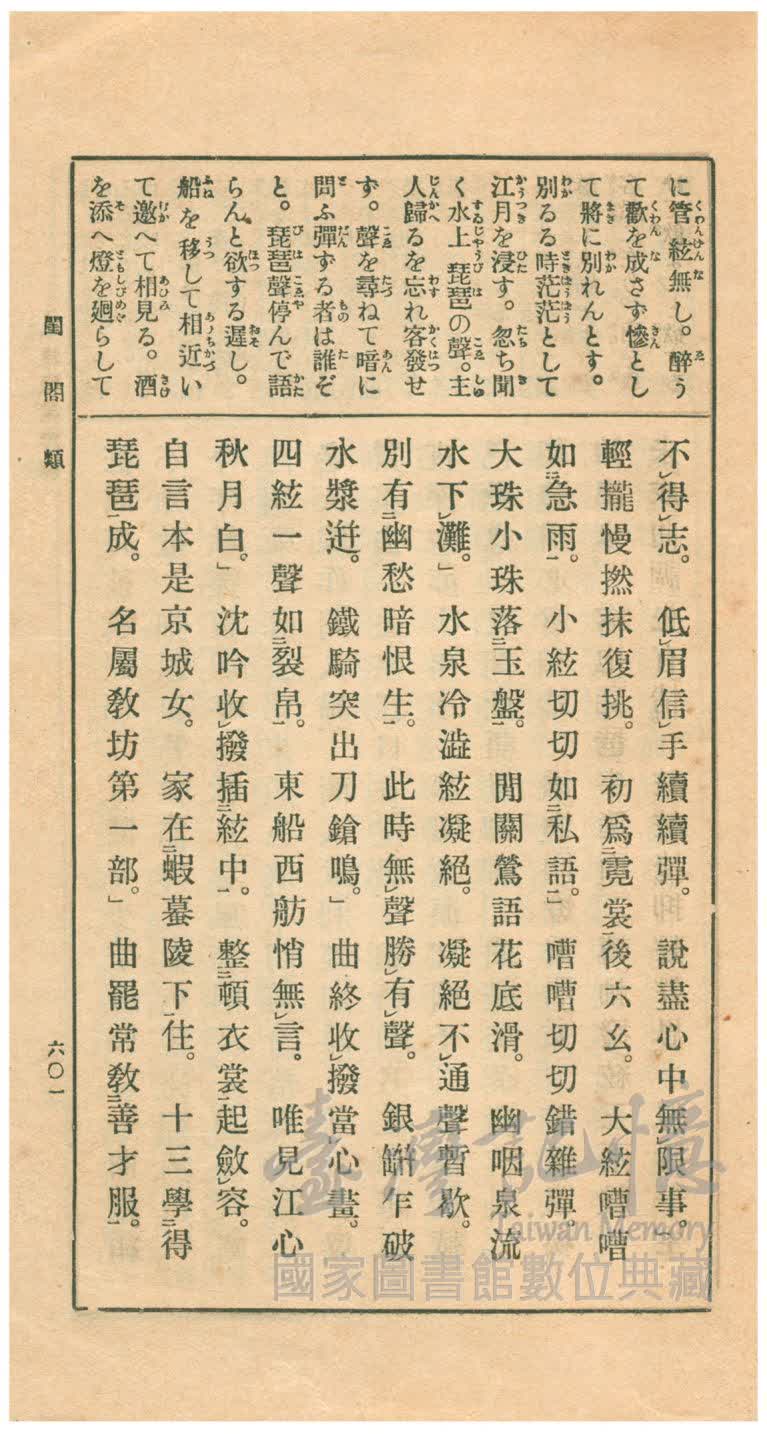 に管絃無し。醉う
て歡を成さず慘とし
て將に別れんとす。
別るる時茫茫として
江月を浸す。忽ち聞
く水上琵琶の聲。主
人歸るを忘れ客發せ
ず。聲を尋ねて暗に
問ふ彈ずる者は誰ぞ
と。琵琶聲停んで語
らんと欲する遲し。
船を移して相近い
て邀へて相見る。酒
を添へ燈を廻らして
不㆑得㆑志。 低㆑眉信㆑手續續彈。 說盡心中無㆑限事。」
輕攏慢撚抹復挑。 初爲㆓霓裳㆒後六幺。 大絃嘈嘈
如㆓急雨㆒。 小絃切切如㆓私語㆒。」 嘈嘈切切錯雜彈。
大珠小珠落㆓玉盤㆒。 閒關鶯語花底滑。 幽咽泉流
水下㆑灘。」 水泉冷澁絃凝絕。 凝絕不㆑通聲暫歇。
別有㆓幽愁暗恨生㆒。 此時無㆑聲勝㆑有㆑聲。 銀缾乍破
水漿逬。 鐵騎突出刀鎗鳴。」 曲終收㆑撥當㆑心畫。
四絃一聲如㆓裂帛㆒。 東船西舫悄無㆑言。 唯見江心
秋月白。」 沈吟收㆑撥插㆓絃中㆒。 整㆓頓衣裳㆒起斂㆑容。
自言本是京城女。 家在㆓蝦蟇陵下㆒住。 十三學㆓得
琵琶㆒成。 名屬敎坊第一部。」 曲罷常敎㆓善才服㆒。
閨閤類
六〇一
臺灣記憶
Taiwan Memory
國家圖書館數位典藏